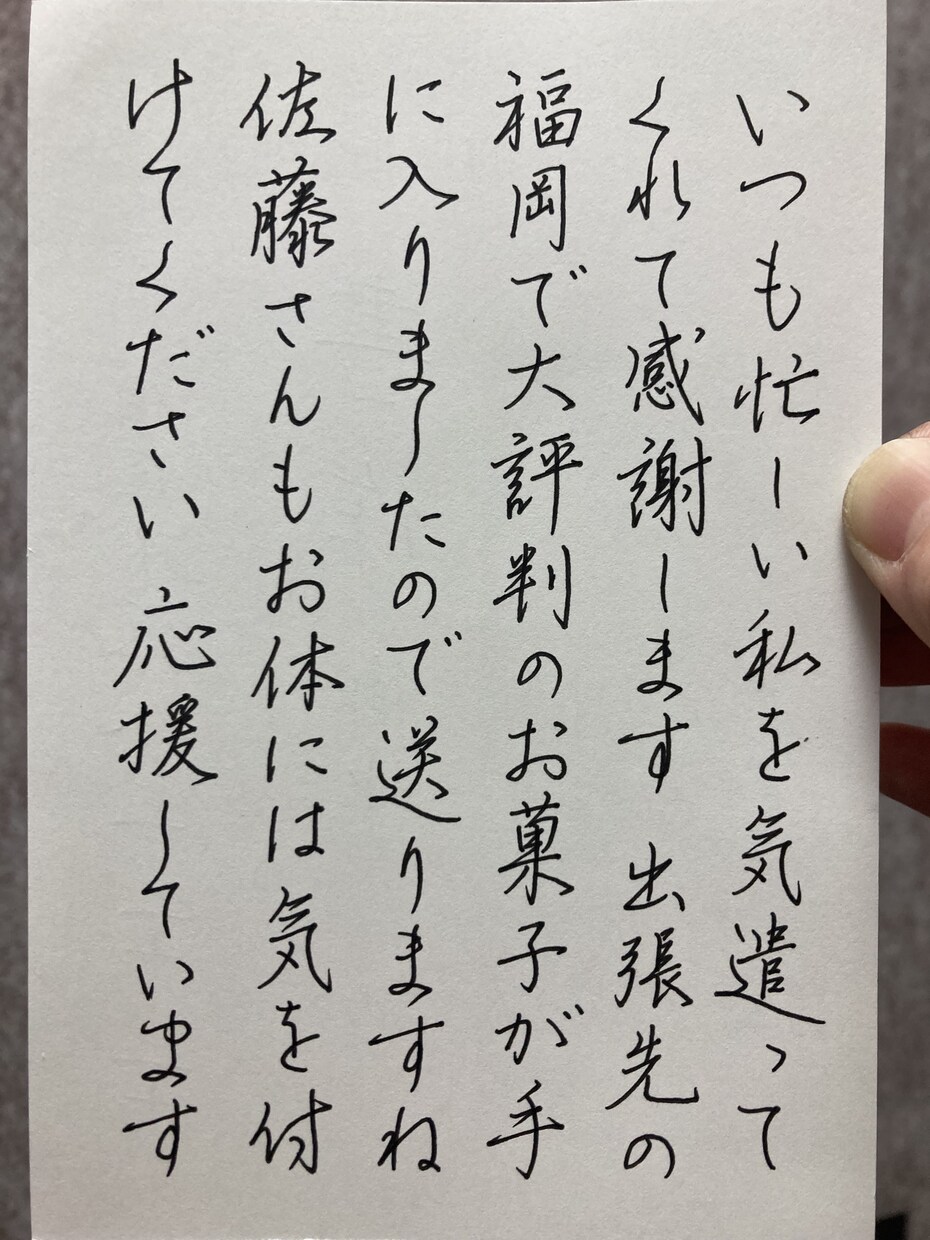 いつも忙しい私を気遣って
くれて感謝します 出張先の
福岡で大評判のお菓子が手
に入りましたので送りますね
佐藤さんもお体には気を付
けてください 応援しています